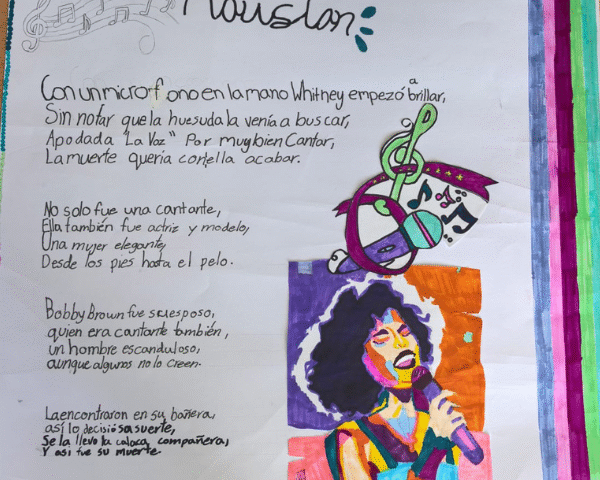 Houston
Con un microfono en la mano Whitney empezó a brillar,
Sin notar que la huesuda la venía a buscar,
Apodada "La Voz" Por muy bien Cantar,
La muerte quería con ella acabar.
No solo fue una cantante,
Ella también fue actriz y modelo,
Una mujer elegante,
Desde los pies hasta el pelo.
Bobby Brown fue su esposo,
quien era cantante también,
un hombre escanduloso,
aunque algunos no lo creen.
La encontraron en su bañera,
así lo decisió sa suerte,
Se la llevo la calaca, compañera,
Y así fue su muerte.